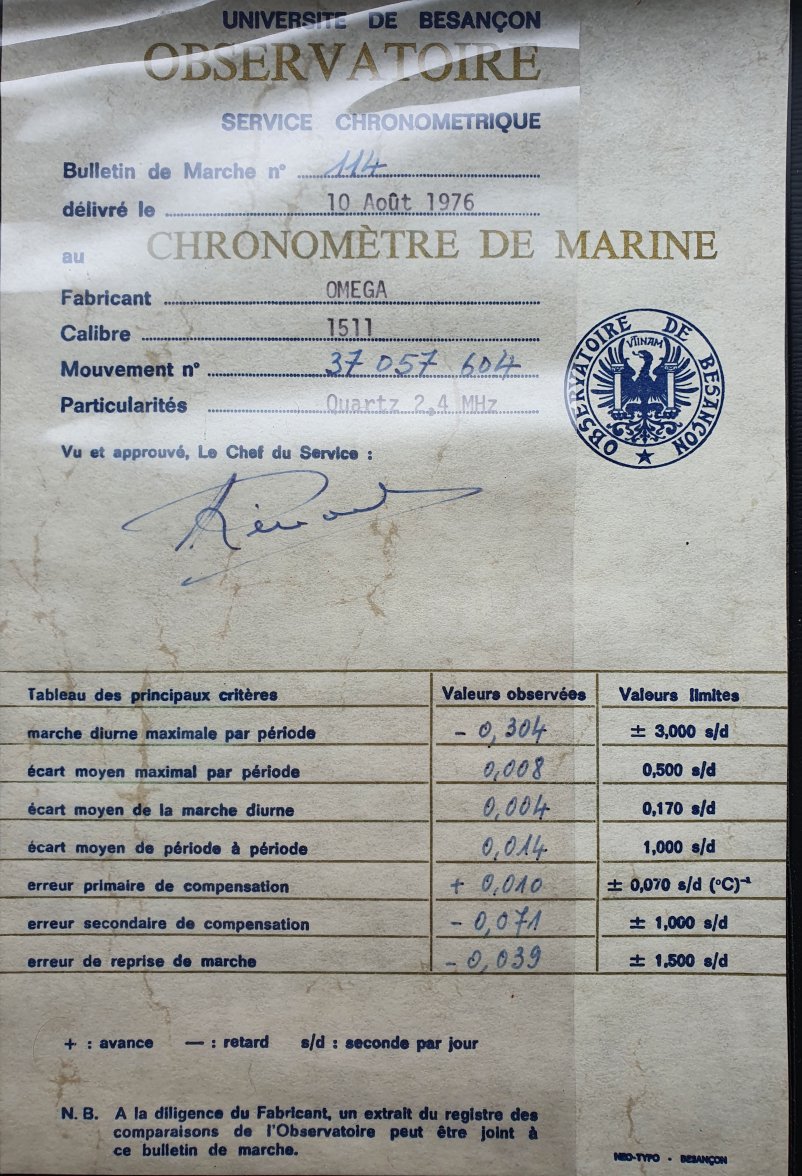 UNIVERSITE DE BESANÇON
OBSERVATOIRE
SERVICE CHRONOMETRIQUE
Bulletin de Marche n° 114
délivré le 10 Août 1976
au CHRONOMÈTRE DE MARINE
Fabricant OMEGA
Calibre 1511
Mouvement n° 37 057 604
Particularités Quartz 2,4 MHz
OBSERVATOIRE DE BESANÇON
UTINAM
Vu et approuvé, Le Chef du Service :
Tableau des principaux critères Valeurs observées Valeurs limites
marche diurne maximale par période - 0,304 ± 3,000 s/d
écart moyen maximal par période 0,008 0,500 s/d
écart moyen de la marche diurne 0,004 0,170 s/d
écart moyen de période à période 0,014 1,000 s/d
erreur primaire de compensation + 0,010 ± 0,070 s/d (°C)⁻¹
erreur secondaire de compensation - 0,071 ± 1,000 s/d
erreur de reprise de marche - 0,039 ± 1,500 s/d
+ : avance — : retard s/d : seconde par jour
N. B. A la diligence du Fabricant, un extrait du registre des
comparaisons de l'Observatoire peut être joint à
ce bulletin de marche.
NEO-TYPO - BESANÇON